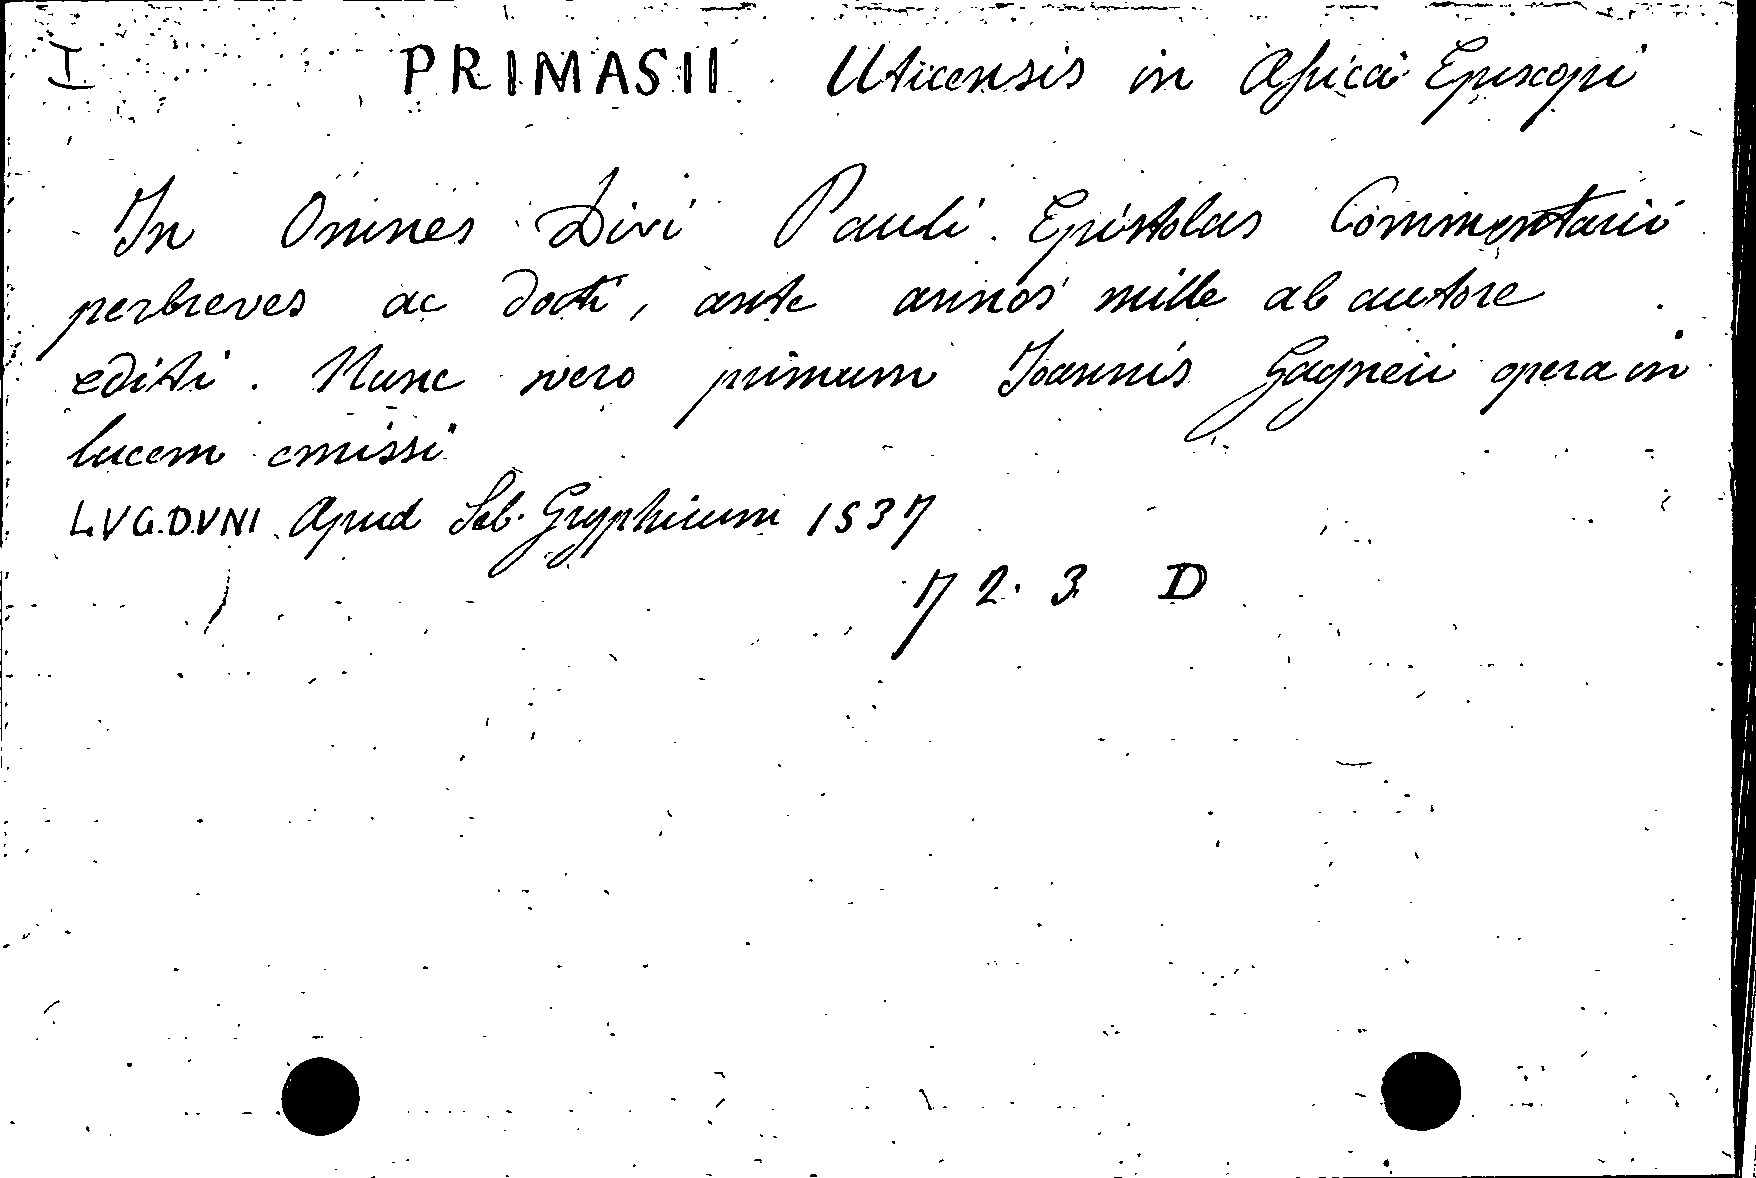 I PRIMASII Uticensis in Africa Episcopi
In Omnes Divi Pauli Epistolas Commentarii
perbreves ac docti, ante annos mille ab autore
editi. Nunc vero primum Joannis Gagneii opera in
lucem emissi
LVGDVNI Apud Seb. Gryphium 1537
72. 3 D